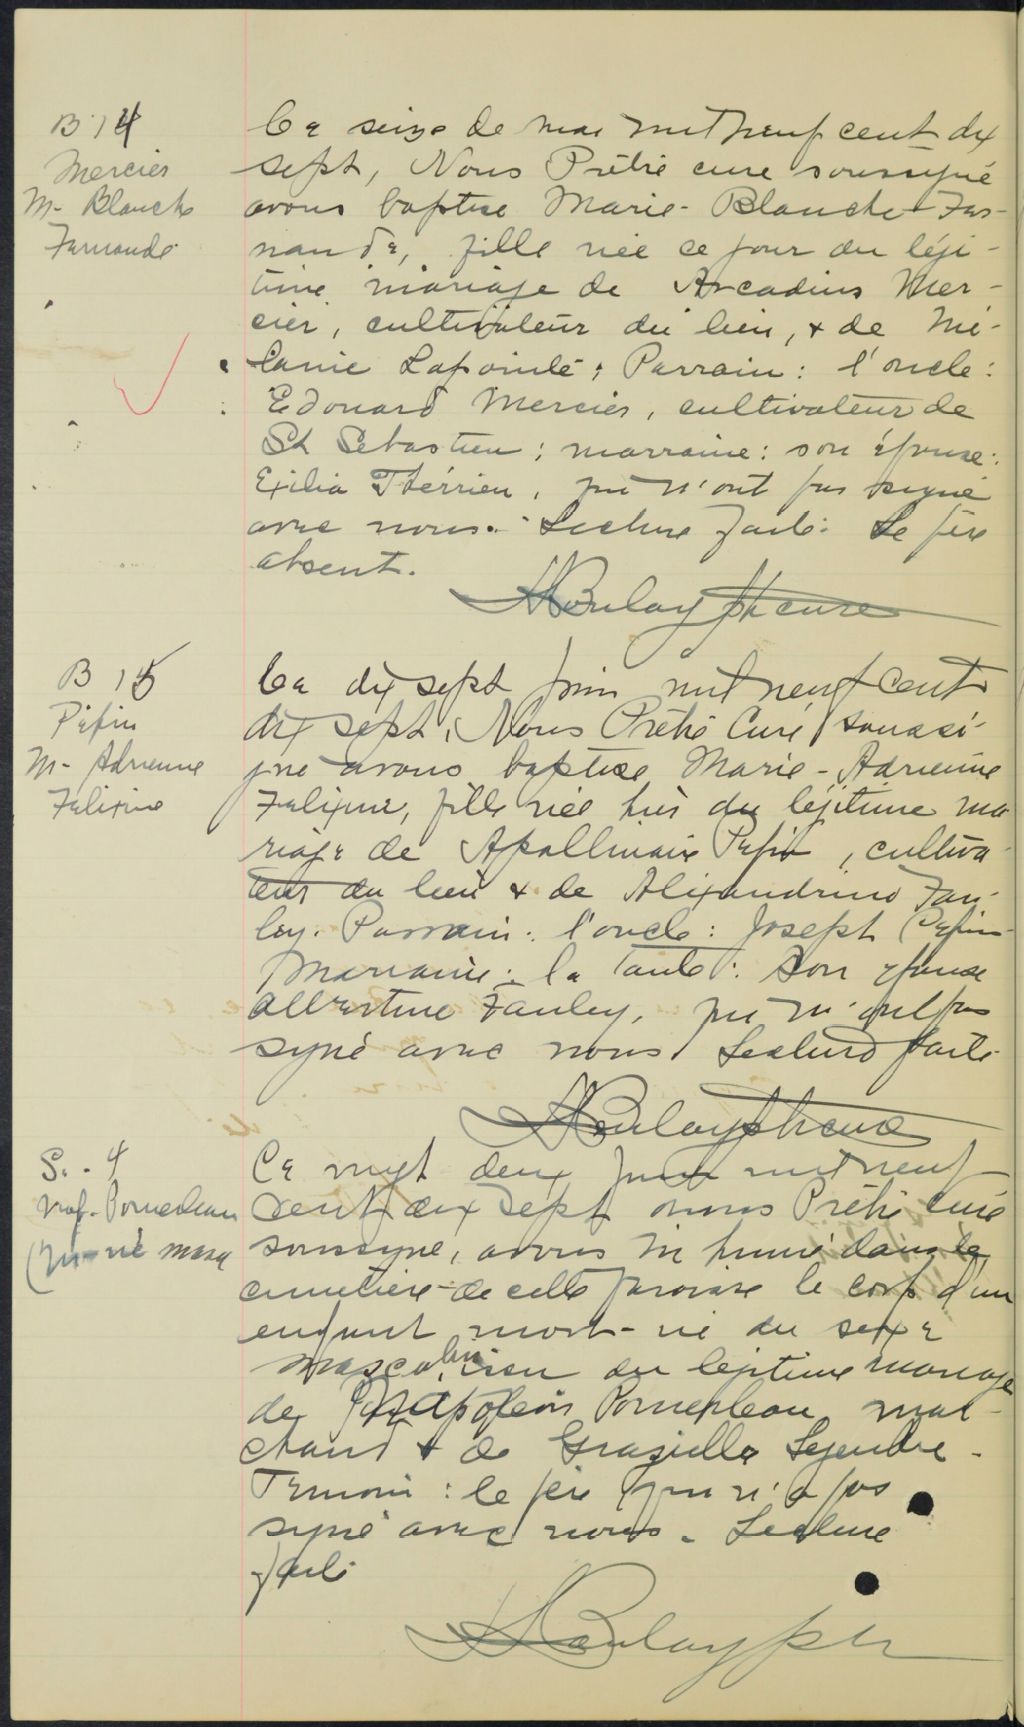 B 14
Mercier
M- Blanche
Fernande
Ce seize de mai mil neuf cent dix
sept, Nous Prêtre curé soussigné
avons baptisé Marie-Blanche-Fer-
nande, fille née ce jour du légi-
time mariage de Arcadius Mer-
cier, cultivateur du lieu, & de Mé-
lanie Lapointe; Parrain: l'oncle:
Edouard Mercier, cultivateur de
St Sébastien; marraine: son épouse:
Exilia Therrien, qui n'ont pas signé
avec nous. Lecture faite. Le père
absent.
Boulay ptre curé
B 15
Pépin
M- Adrienne
Félixine
Ce dix sept juin mil neuf cent
dix sept, Nous Prêtre Curé soussi-
gné avons baptisé Marie-Adrienne
Félixine, fille née hier du légitime ma
riage de Apollinaire Pépin, cultiva-
teur du lieu & de Alexandrine Fau-
ley. Parrain: l'oncle: Joseph Pépin
Marraine: la tante: son épouse
Albertine Fauley, qui n'ont pas
signé avec nous Lecture faite
Boulay ptre curé
S. . 4
Pomerleau
né masc
Ce vingt deux juin mil neuf
cent dix sept nous Prêtre curé
soussigné, avons inhumé dans le
cimetière de cette paroisse le corps d'un
enfant mort-né du sexe
masculin du légitime mariage
de Napoléon Pomerleau mar-
chand & de Graziella Legendre-
Témoin: le père qui n'a pas
signé avec nous. Lecture
faite
Boulay ptr